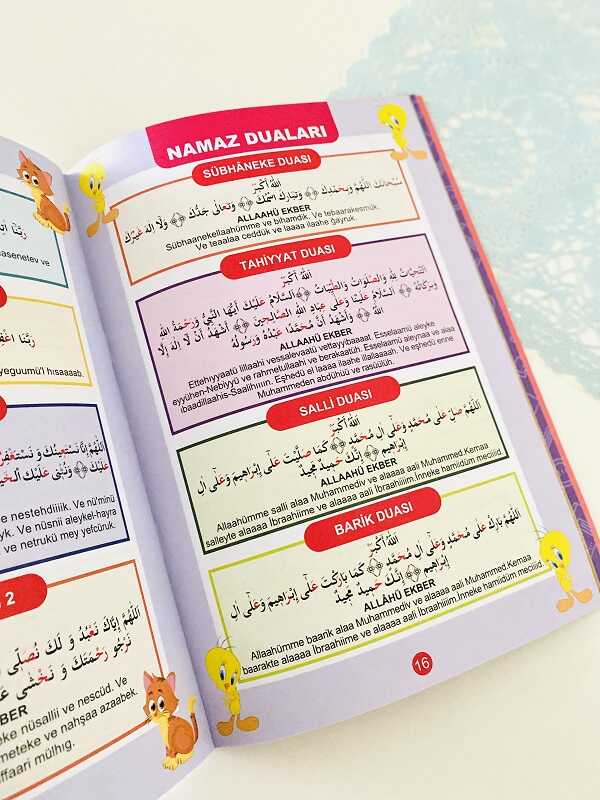 رَبَّنَا
asenetev ve
رَبَّنَا
yeguumü'l hısaaaab.
اَللّٰهُمَّ اِنَّا نَسْتَعِينُكَ وَ نَسْتَغْفِرُ
عَلَيْكَ وَنُثْنِى عَلَيْكَ
e nestehdiiik. Ve nü'minü
yk. Ve nüsnii aleykel-hayra
ve netrukü mey yefcüruk.
2
اَللّٰهُمَّ اِيَّاكَ نَعْبُدُ وَ لَكَ نُصَلِّى
نَرْجُو رَحْمَتَكَ وَ نَخْشٰى
BER
eke nüsallii ve nescüd. Ve
meteke ve nahşaa azaabek.
üffaari mülhıg.
NAMAZ DUALARI
SÜBHÂNEKE DUASI
اَللّٰهُ اَكْبَرُ
سُبْحَانَكَ اللّٰهُمَّ وَبِحَمْدِكَ وَتَبَارَكَ اسْمُكَ وَتَعَالٰى جَدُّكَ وَلَا اِلٰهَ غَيْرُكَ
ALLAAHÜ EKBER
Sübhaanekellaahümme ve bihamdik. Ve tebaarakesmük.
Ve teaalaa ceddük ve laaaa ilaahe ğayruk.
TAHİYYAT DUASI
اَللّٰهُ اَكْبَرُ
اَلتَّحِيَّاتُ لِلّٰهِ وَالصَّلَوَاتُ وَالطَّيِّبَاتُ اَلسَّلَامُ عَلَيْكَ اَيُّهَا النَّبِىُّ وَرَحْمَةُ اللّٰهِ
وَبَرَكَاتُهُ اَلسَّلَامُ عَلَيْنَا وَعَلٰى عِبَادِ اللّٰهِ الصَّالِحِينَ اَشْهَدُ اَنْ لَا اِلٰهَ اِلَّا
اللّٰهُ وَاَشْهَدُ اَنَّ مُحَمَّدًا عَبْدُهُ وَرَسُولُهُ
ALLAAHÜ EKBER
Ettehiyyaatü lillaahi vessalevaatü vettayyibaaaat. Esselaamü aleyke
eyyühen-Nebiyyü ve rahmetullaahi ve berakaatüh. Esselaamü aleynaa ve alaa
ibaadillaahis-Saalihııın. Eşhedü el laaaa ilaahe illallaaaah. Ve eşhedü enne
Muhammeden abdühüü ve rasüülüh.
SALLİ DUASI
اَللّٰهُ اَكْبَرُ
اَللّٰهُمَّ صَلِّ عَلٰى مُحَمَّدٍ وَعَلٰى اٰلِ مُحَمَّدٍ كَمَا صَلَّيْتَ عَلٰى اِبْرٰهِيمَ وَعَلٰى اٰلِ
اِبْرٰهِيمَ اِنَّكَ حَمِيدٌ مَجِيدٌ
ALLAAHÜ EKBER
Allaahümme salli alaa Muhammediv ve alaaaa aali Muhammed.Kemaa
salleyte alaaaa İbraahiime ve alaaaa aali İbraahiiim.İnneke hamiidüm meciiid.
BARİK DUASI
اَللّٰهُ اَكْبَرُ
اَللّٰهُمَّ بَارِكْ عَلٰى مُحَمَّدٍ وَعَلٰى اٰلِ مُحَمَّدٍ كَمَا بَارَكْتَ عَلٰى اِبْرٰهِيمَ وَعَلٰى اٰلِ
اِبْرٰهِيمَ اِنَّكَ حَمِيدٌ مَجِيدٌ
ALLÂHÜ EKBER
Allaahümme baarik alaa Muhammediv ve alaaaa aali Muhammed.Kemaa
baarakte alaaaa İbraahiime ve alaaaa aali İbraahiiiim.İnneke hamiidüm meciiid.
16